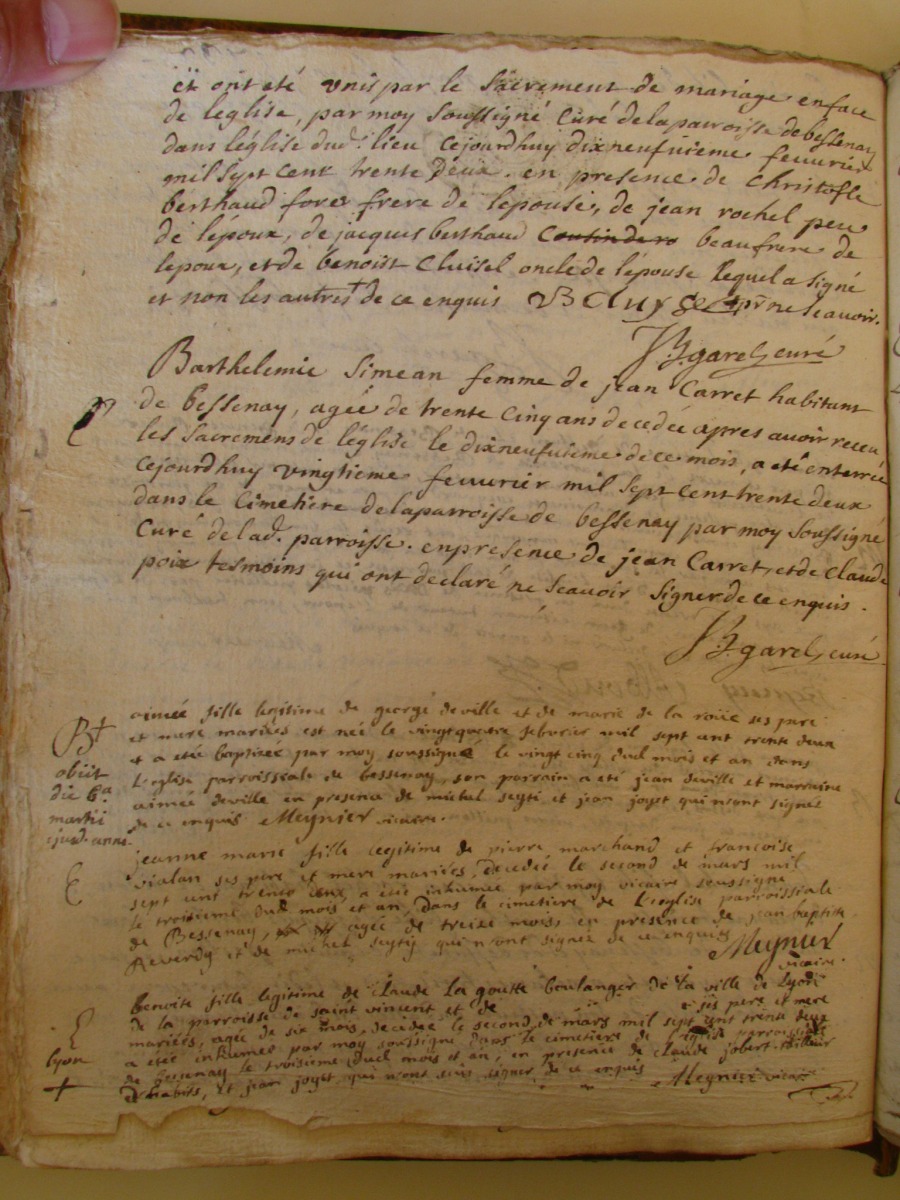 et ont eté unis par le Sacrement de mariage en face
de leglise, par moy Soussigné Curé de la parroisse de bessenay
dans léglise dud. lieu cejourdhuy dixneufuieme feuurier
mil sept cent trente deux. en presence de Christofle
berthaud forer frere de lepouse, de jean rochel pere
de lépoux, de jacques berthaud beaufrere de
lepoux, et de benoist Cluisel oncle de lépouse lequel a signé
et non les autres de ce enquis ne scauoir.
JB garel, curé
Barthelemie Simean femme de jean Carret habitant
de bessenay, agée de trente Cinq ans decedée apres auoir receu
les Sacremens de léglise le dixneufuieme de ce mois, a eté enterrée
Cejourdhuy vingtieme feuurier mil sept cent trente deux
dans le Cimetiere de la parroisse de bessenay par moy Soussigné
Curé de lad. parroisse. en presence de jean Carret, et de Claude
poix tesmoins qui ont declaré ne Scauoir Signer de ce enquis.
JB garel, curé
Bt
obiit
die 6a
martii
ejusd. anni
aimée fille legitime de george deville et de marie de la roüe ses pere
et mere mariées est née le vingtquatre febvrier mil sept cent trente deux
et a etée baptizée par moy soussigné le vingt cinq dud mois et an dans
L'eglise parroissiale de bessenay, son parrain a eté jean deville et marraine
aimée deville en presence de michel seyti et jean joyet qui n'ont signés
de ce enquis Meynier vicaire.
jeanne marie fille legitime de pierre marchand et francoise
vialan ses pere et mere mariées, decedée le second de mars mil
sept cent trente deux, a etée inhumée par moy vicaire soussigné
le troisieme dud mois et an, dans le cimetiere de L'eglise parroissiale
de Bessenay, agée de treize mois, en presence de jean baptiste
Reverdy et de michel seytij qui n'ont signez de ce enquis Meynier
vicaire.
lyon
benoite fille legitime de Claude La goutte boulanger de La ville de Lyon
de la parroisse de saint vincent et de ses pere et mere
mariées, agée de six mois, decedée le second de mars mil sept cent trente deux
a etée inhumée par moy soussigné dans le cimetiere de l'eglise parroissiale
de bessenay le troisieme dud mois et an, en presence de Claude jobert tailleur
d'habits, et jean joyet qui n'ont sceu signer de ce enquis Meynier vicaire